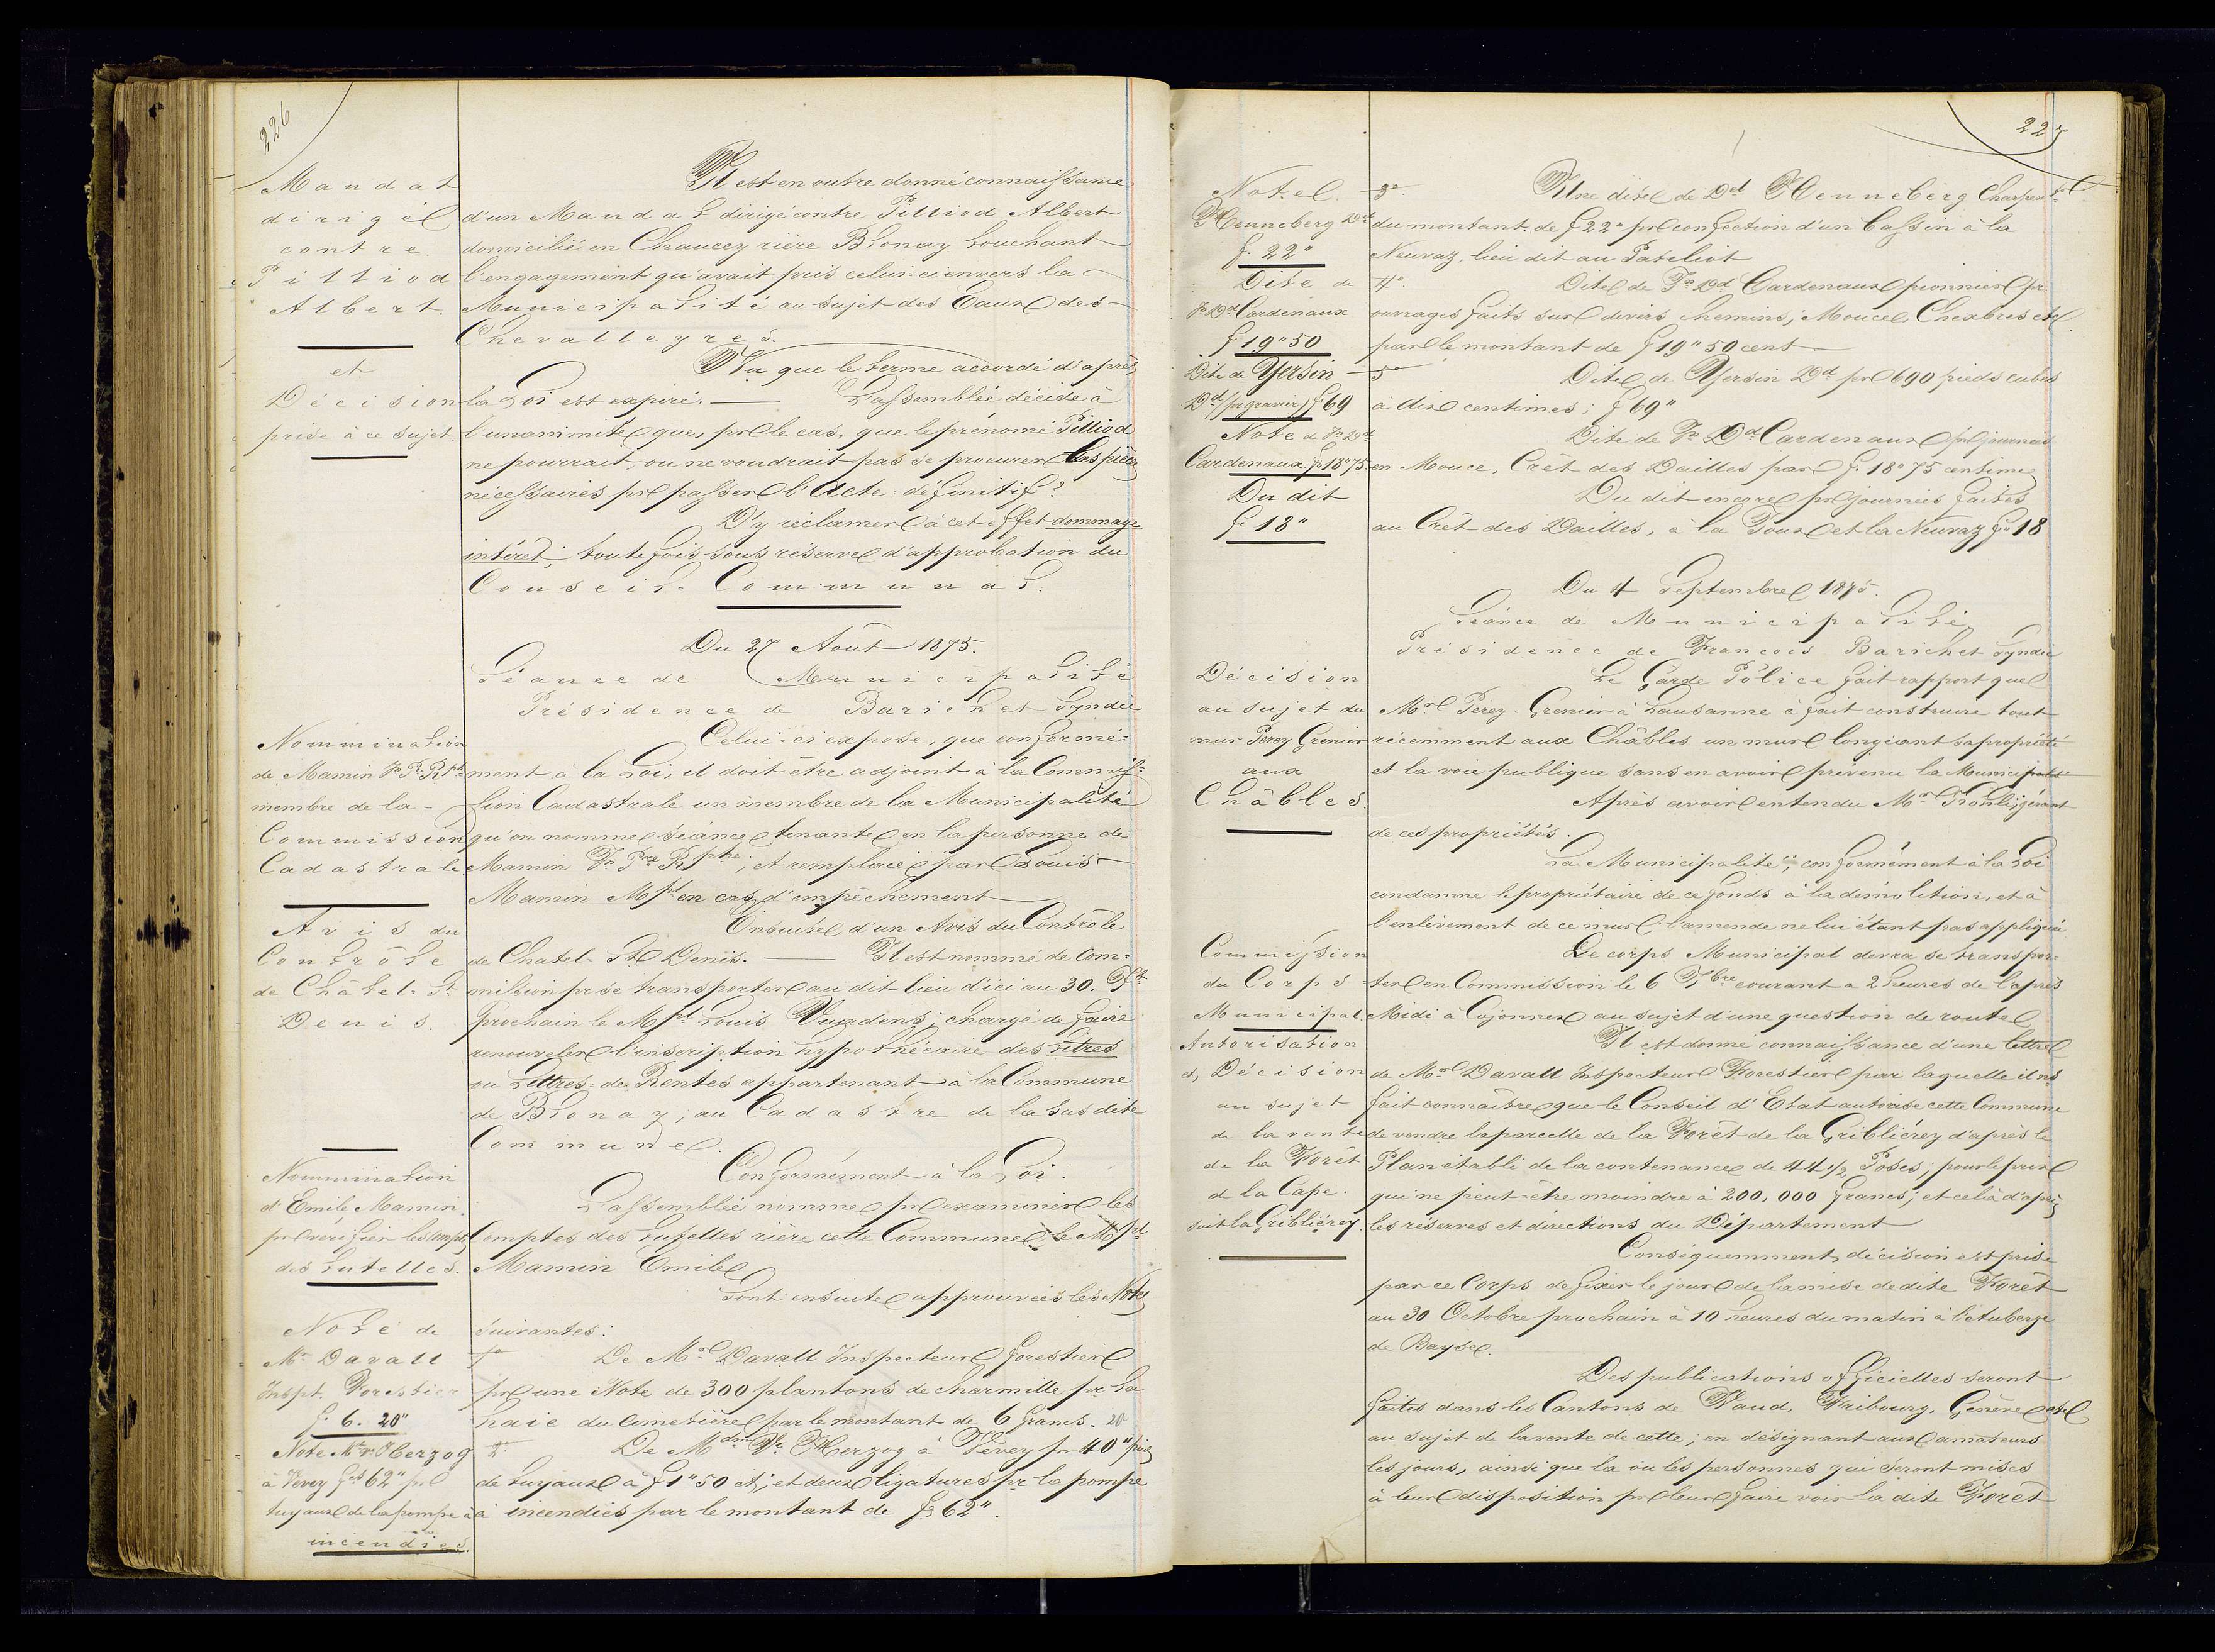 226
Mandat
dirigé
contre
Pilliod
Albert.
et
Décision
prise à ce sujet
Il est en outre donné connaissance
d'un Mandat dirigé contre Pilliod Albert
domicilié en Chaucey rière Blonay touchant
l'engagement qu'avait pris celui ci envers la
Municipalité au sujet des Eaux des
Chevalleyres.
Vu que le terme accordé d'après
la Loi est expiré. — L'assemblée décide à
l'unanimité que, pr le cas, que le prénomé Pilliod
ne pourrait, ou ne voudrait pas se procurer les pièces
nécessaires pr passer l'Acte définitif?
D'y réclamer à cet effet dommage
intéret; toute fois sous réserve d'approbation du
Conseil Communal.
Du 27 Août 1875.
Séance de Municipalité
Présidence de Barichet Syndic
Nommination
de Mamin Fs Pre Rphe
membre de la
Commission
Cadastrale
Celui-ci expose, que conformé=
ment à la Loi, il doit être adjoint à la Commis=
sion Cadastrale un membre de la Municipalité
qu'on nomme séance tenante en la personne de
Mamin Fs Pre Rphe; et remplacé par Louis
Mamin Mpal en cas d'empêchement
Avis du
Contrôle
de Châtel-St
Denis.
Ensuite d'un Avis du Contrôle
de Chatel-St Denis. — Il est nommé de Com=
mission pr se transporter au dit lieu d'ici au 30. 7bre
prochain le Mpal Louis Vuadens; chargé de faire
renouveler l'inscription hypothécaire des titres
ou Lettres de Rentes appartenant à la Commune
de Blonay; au Cadastre de la susdite
Commune.
Nommination
d'Emile Mamin
pr vérifier les Comptes
des Tutelles.
Conformément à la Loi.
L'assemblée nomme pr examiner les
Comptes des Tutelles rière cette Commune le Mpal
Mamin Emile
Sont ensuite approuvées les Notes
suivantes:
Note de
Mr Davall
Inspt. Forestier
f. 6. 20"
1o De Mr Davall Inspecteur forestier
pr une Note de 300 plantons de charmille pr la
haie du cimetière par le montant de 6 francs. 20
Note Me Ve Herzog
à Vevey fcs 62" pr
tuyaux de la pompe à
incendies.
2o De Mdme Ve Herzog à Vevey pr 40" pieds
de tuyaux à f 1"50 ct; et deux ligatures pr la pompe
à incendies par le montant de fs 62".
227
Note
Henneberg Dd
f. 22"
3o Une dite de Dd Henneberg Charpent
du montant de f 22" pr confection d'un bassin à la
Neuvaz, lieu dit au Paseliot
Dite de
Fs Dd Cardenaux
f 19"50
4o Dite de Fs Dd Cardenaux pionnier pr
ouvrages faits sur divers chemins; Mouce, Chexbres etc
par le montant de f 19"50 cent
Dite de Yersin
Dd (pr gravier) f 69
5o Dite de Yersin Dd pr 690 pieds cubes
à dix centimes; f 69"
Note de Fs Dd
Cardenaux fs 18"75
Dite de Fs Dd Cardenaux pr journées
en Mouce, Crêt des Dailles par f. 18"75 centimes
Du dit
fs 18"
Du dit encore pr journées faites
au Crêt des Dailles, à la Tour et la Neuvaz fs 18
Du 4 Septembre 1875.
Séance de Municipalité
Présidence de François Barichet Syndic
Décision
au sujet du
mur Perey Grenier
aux
Châbles.
Le Garde Police fait rapport que
Mr Perey-Grenier à Lausanne à fait construire tout
récemment aux Châbles un mur longeant sa propriété
et la voie publique sans en avoir prévenu la Municipalité
Après avoir entendu Mr gérant
de ces propriétés.
La Municipalité; conformément à la Loi
condamne le propriétaire de ce fonds à la démolition, et à
l'enlèvement de ce mur; l'amende ne lui étant pas appliquée
Commission
du Corps
Municipal.
Le corps Municipal devra se transpor=
ter en Commission le 6 7bre courant a 2 heures de l'après
Midi à Cojonnex au sujet d'une question de route
Autorisation
et, Décision
au sujet
de la vente
de la Forêt
d la Cape.
soit la Gribliérey.
Il est donné connaissance d'une lettre
de Mr Davall Inspecteur Forestier par laquelle il ns
fait connaître que le Conseil d'Etat autorise cette Commune
de vendre la parcelle de la Forêt de la Gribliérey d'après le
Plan établi de la contenance de 44 1/2 Poses; pour le prix
qui ne peut être moindre à 200,000 francs; et celà d'après
les réserves et directions du Département
Conséquemment, décision est prise
par ce Corps de fixer le jour de la mise de dite Forêt
au 30 Octobre prochain à 10 heures du matin à l'Auberge
de Bayse.
Des publications officielles seront
faites dans les Cantons de Vaud, Fribourg, Genève etc
au sujet de la vente de cette; en désignant aux amateurs
les jours, ainsi que la ou les personnes qui seront mises
à leur disposition pr leur faire voir la dite Forêt